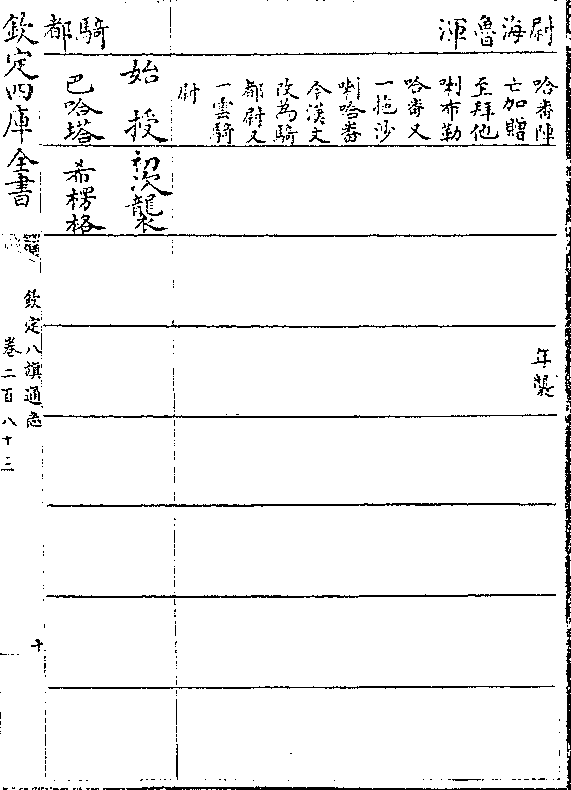 尉海魯渾
哈番陣
亡加贈
至拜他
喇布勒
哈番又
一拖沙
喇哈番
今漢文
改為騎
都尉又
一雲騎
尉
年襲
騎都
始授
初次襲
巴哈塔
希楞格
欽定四庫全書
欽定八旗通志
卷二百八十三
十